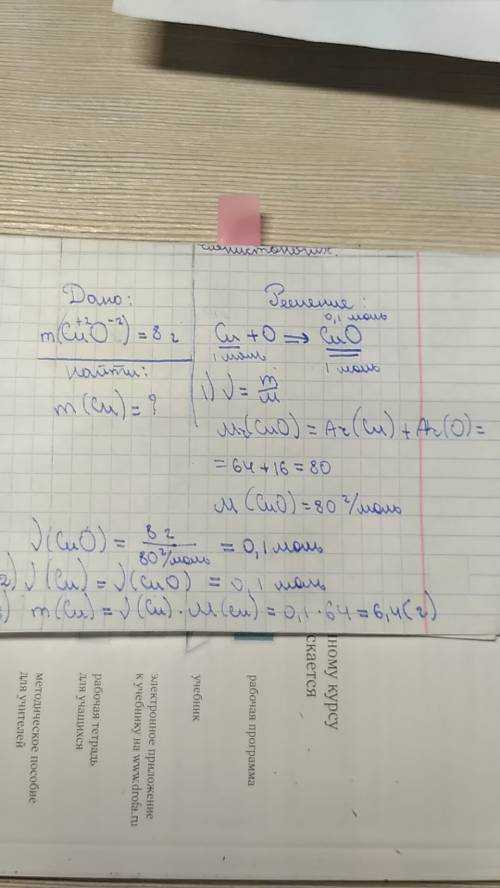 Дано:
m(Cu⁺²O⁻²) = 8 г
Найти:
m(Cu) = ?
Решение:
0,1 моль
Cu + O ⇒ CuO
1 моль 1 моль
1) ν = m/M
Mr(CuO) = Ar(Cu) + Ar(O) =
= 64 + 16 = 80
M(CuO) = 80 г/моль
ν(CuO) = 8 г / 80 г/моль = 0,1 моль
2) ν(Cu) = ν(CuO) = 0,1 моль
m(Cu) = ν(Cu) · M(Cu) = 0,1 · 64 = 6,4 (г)
ному курсу
скается
рабочая программа
учебник
электронное приложение
к учебнику на www.drofa.ru
рабочая тетрадь
для учащихся
методическое пособие
для учителей